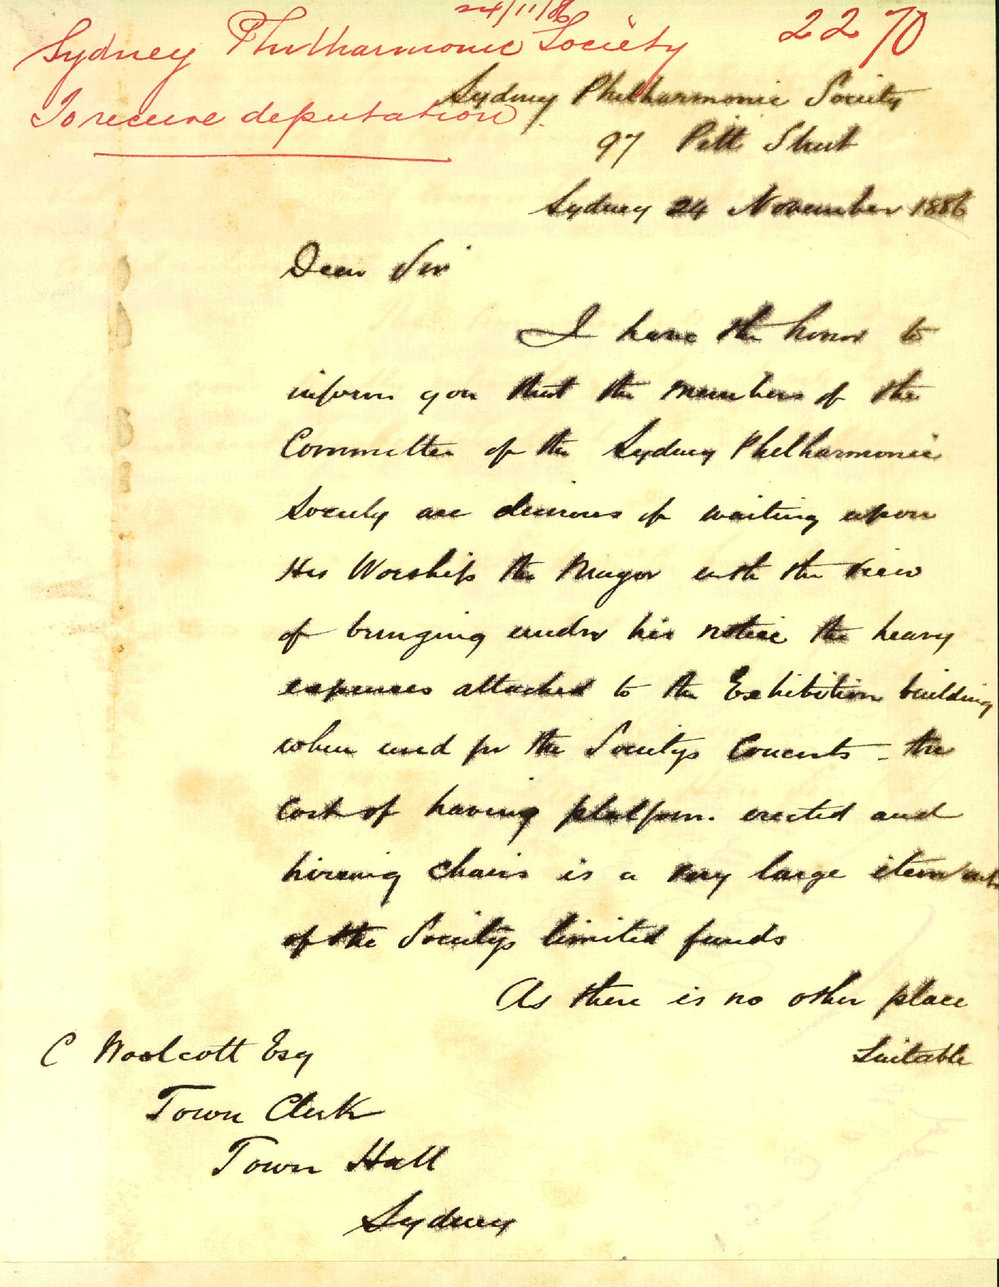 24/11/86
2270
Sydney Philharmonic Society
To receive deputation
Sydney Philharmonic Society
97 Pitt Street
Sydney 24 November 1886
Dear Sir
I have the honor to
inform you that the members of the
Committee of the Sydney Philharmonic
Society are desirous of waiting upon
His Worship the Mayor with the view
of bringing under his notice the heavy
expenses attached to the Exhibition building
when used for the Societys Concerts – the
cost of having platform erected and
hireing chairs is a very large item
of the Societys limited funds
As there is no other place
suitable
C Woolcott Esq
Town Clerk
Town Hall
Sydney